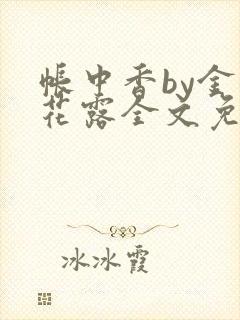 帐中香by金
花露全文免
冰冰霞